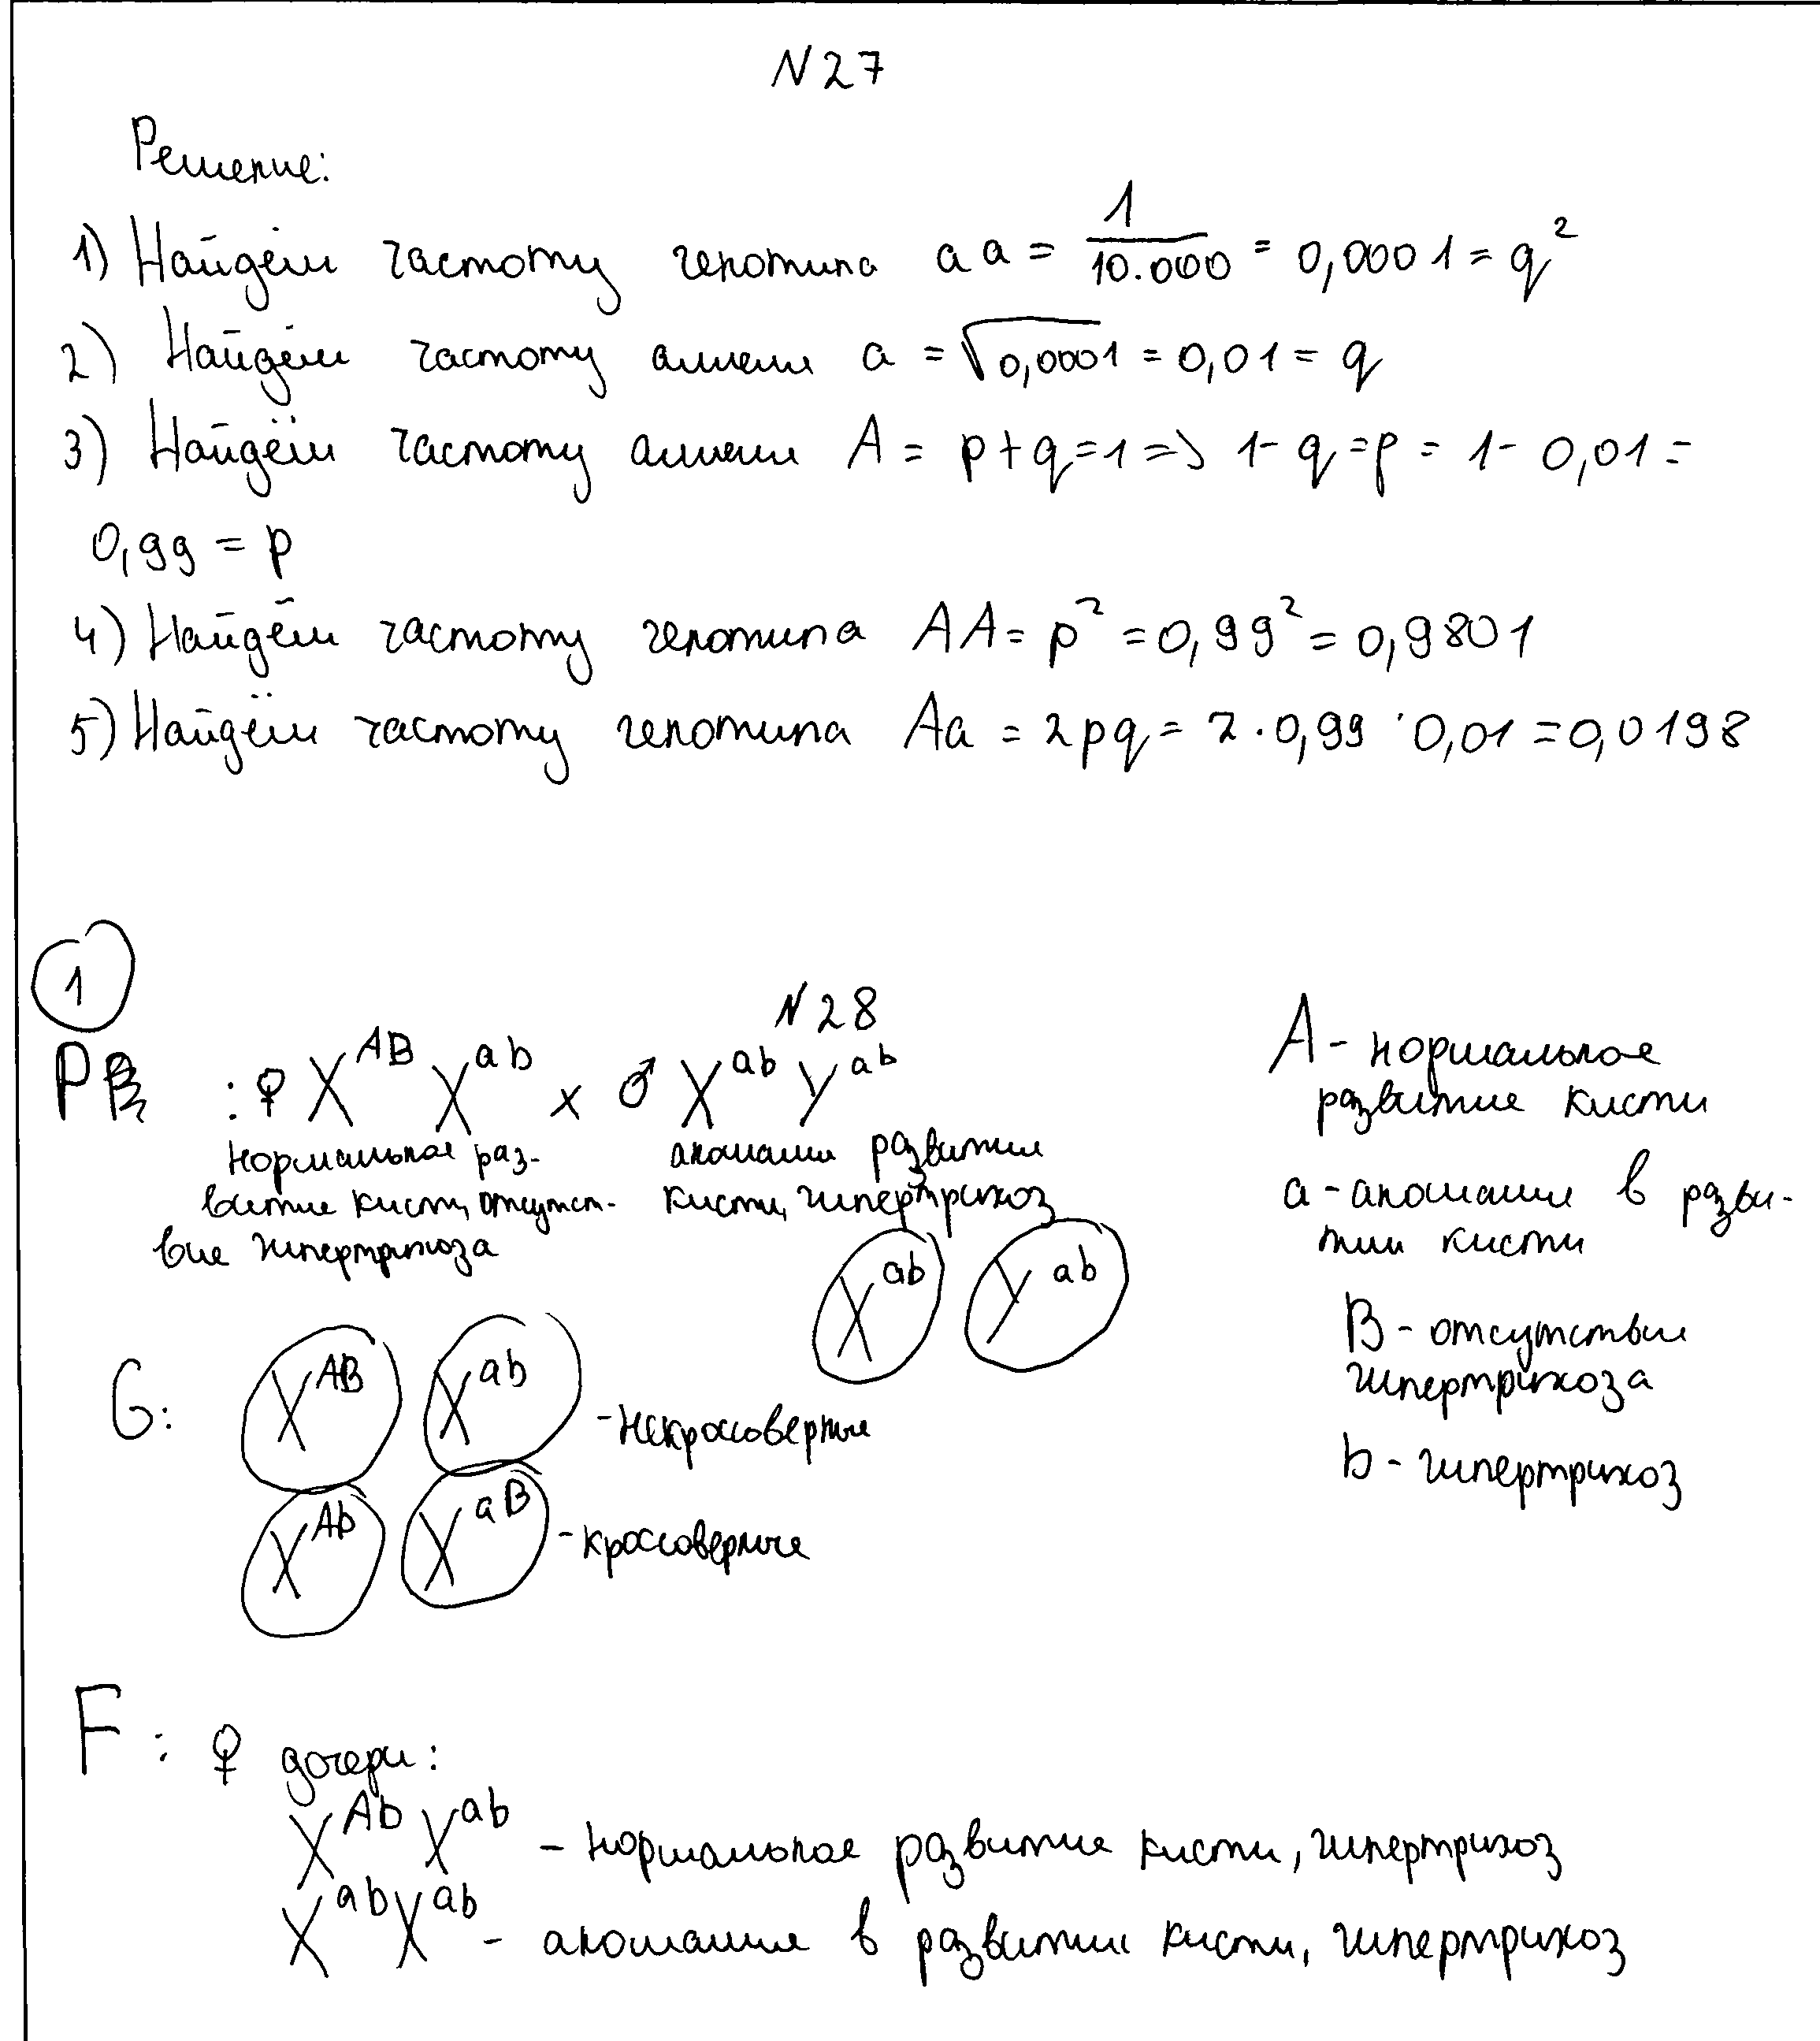 N27
Решение:
1) Найдём частоту генотипа aa = 1/10.000 = 0,0001 = q²
2) Найдём частоту аллели a = √0,0001 = 0,01 = q
3) Найдём частоту аллели A = p+q=1 => 1-q=p = 1-0,01=
0,99 = p
4) Найдём частоту генотипа AA = p² = 0,99² = 0,9801
5) Найдём частоту генотипа Aa = 2pq = 2·0,99·0,01 = 0,0198
1
N28
P : ♀ X^AB X^ab x ♂ X^ab Y^ab
нормальное раз-
витие кисти, отсутст-
вие гипертрихоза
аномалии развития
кисти, гипертрихоз
A - нормальное
развитие кисти
a - аномалия в разви-
тии кисти
B - отсутствие
гипертрихоза
b - гипертрихоз
X^ab Y^ab
G: X^AB X^ab - некроссоверные
X^Ab X^aB - кроссоверные
F : ♀ дочери:
X^Ab X^ab - нормальное развитие кисти, гипертрихоз
X^ab X^ab - аномалия в развитии кисти, гипертрихоз